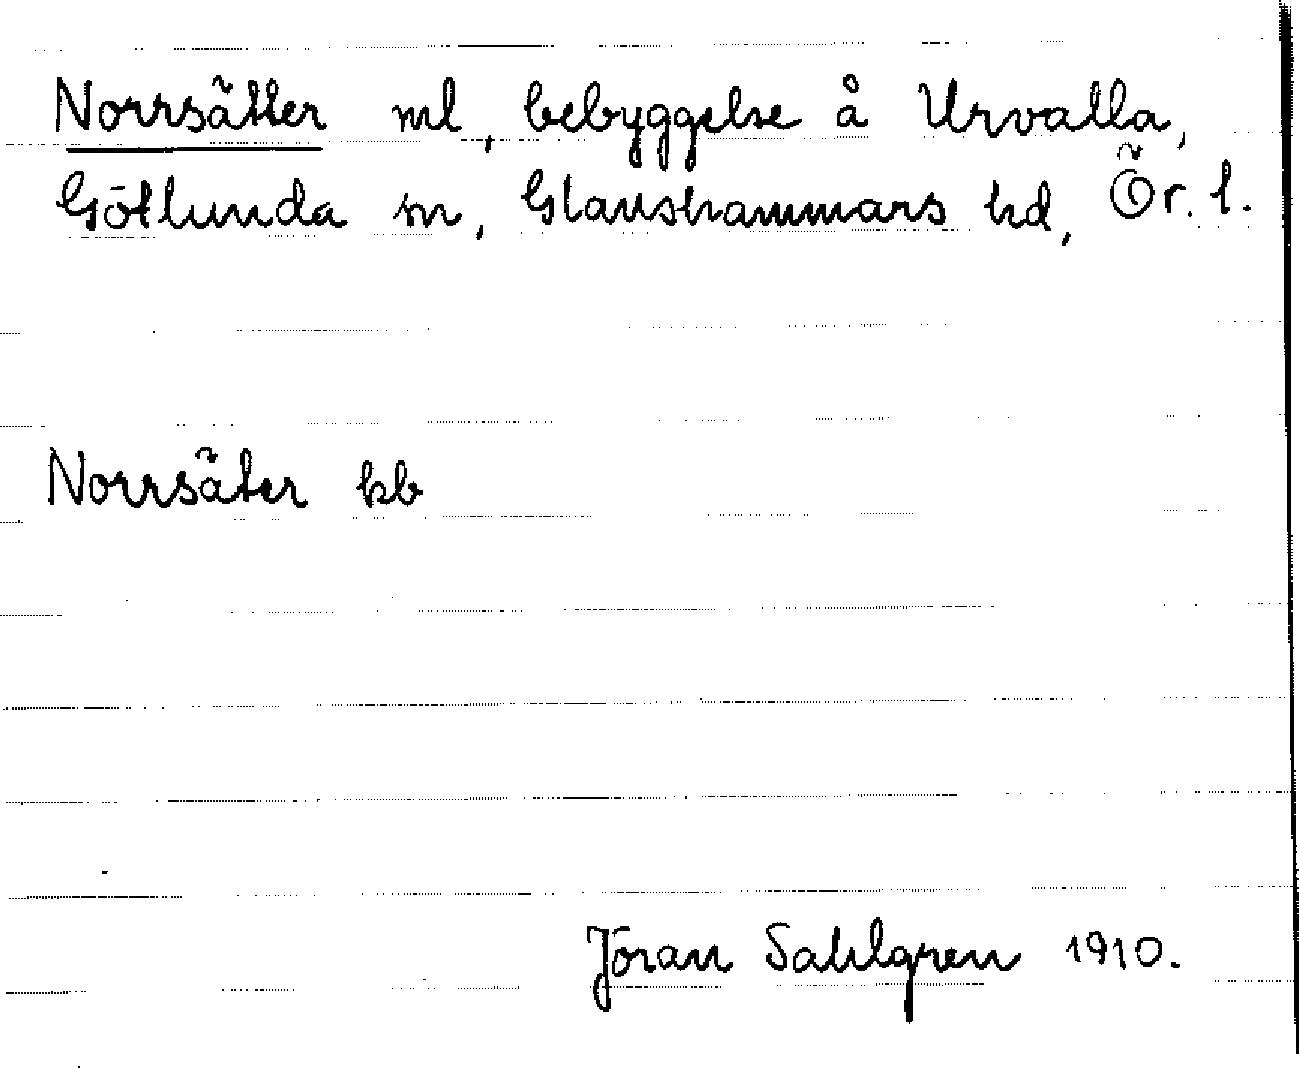 Norrsätter ml, bebyggelse å Urvalla,
Götlunda sn, Glanshammars hd, Ör. l.
Norrsäter kb
Jöran Sahlgren 1910.